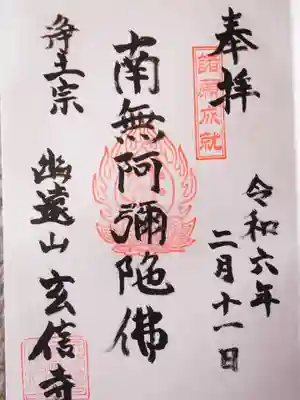 奉拝
諸願成就
令和六年
二月十一日
南無阿彌陀佛
浄土宗
幽遠山玄信寺